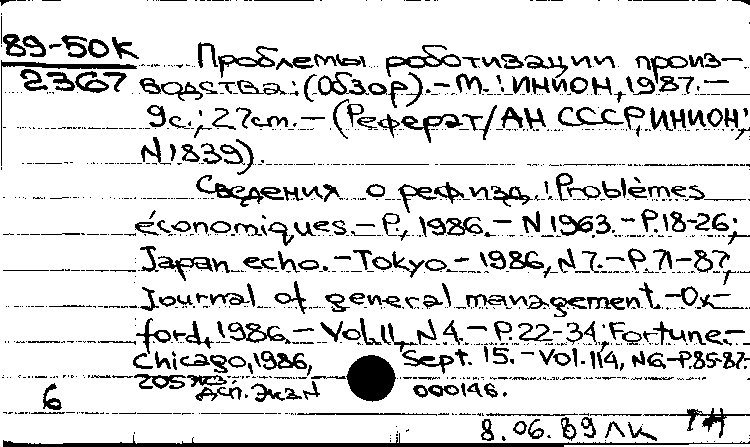 89-50К
2367
Проблемы роботизации произ-
водства: (Обзор). - М.: ИНИОН, 1987. -
9с.; 27см. - (Реферат/АН СССР, ИНИОН;
N1839).
Сведения о реф.изд.: Problèmes
économiques. - P., 1986. - N 1963. - P.18-26;
Japan echo. - Tokyo. - 1986, N7. - P.71-87;
Journal of general management. - Ox-
ford, 1986. - Vol.11, N4. - P.22-34; Fortune. -
Chicago, 1986, Sept. 15. - Vol.114, N6. - P.85-87.
205 экз.
ДСП. Экз.N 000146.
6
8.06.89 ЛК